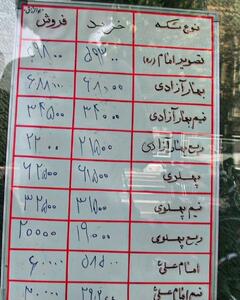 نوع سکه خرید فروش
تصویر امام (ره) ۵۹۳۰۰
بهار آزادی ۶۸۰۰۰ ۶۸۸۰۰
نیم بهار آزادی ۳۴۰۰۰ ۳۴۵۰۰
ربع بهار آزادی ۲۱۵۰۰ ۲۲۰۰۰
پهلوی ۶۱۵۰۰ ۶۲۵۰۰
نیم پهلوی ۳۱۵۰۰ ۳۲۵۰۰
ربع پهلوی ۱۹۰۰۰ ۲۰۰۰۰
امام علی
امام علی